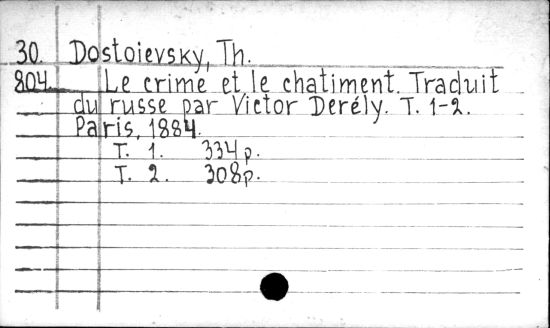 30. Dostoievsky, Th.
804. Le crime et le chatiment. Traduit
du russe par Victor Derély. T. 1-2.
Paris, 1884.
T. 1. 334 p.
T. 2. 308p.